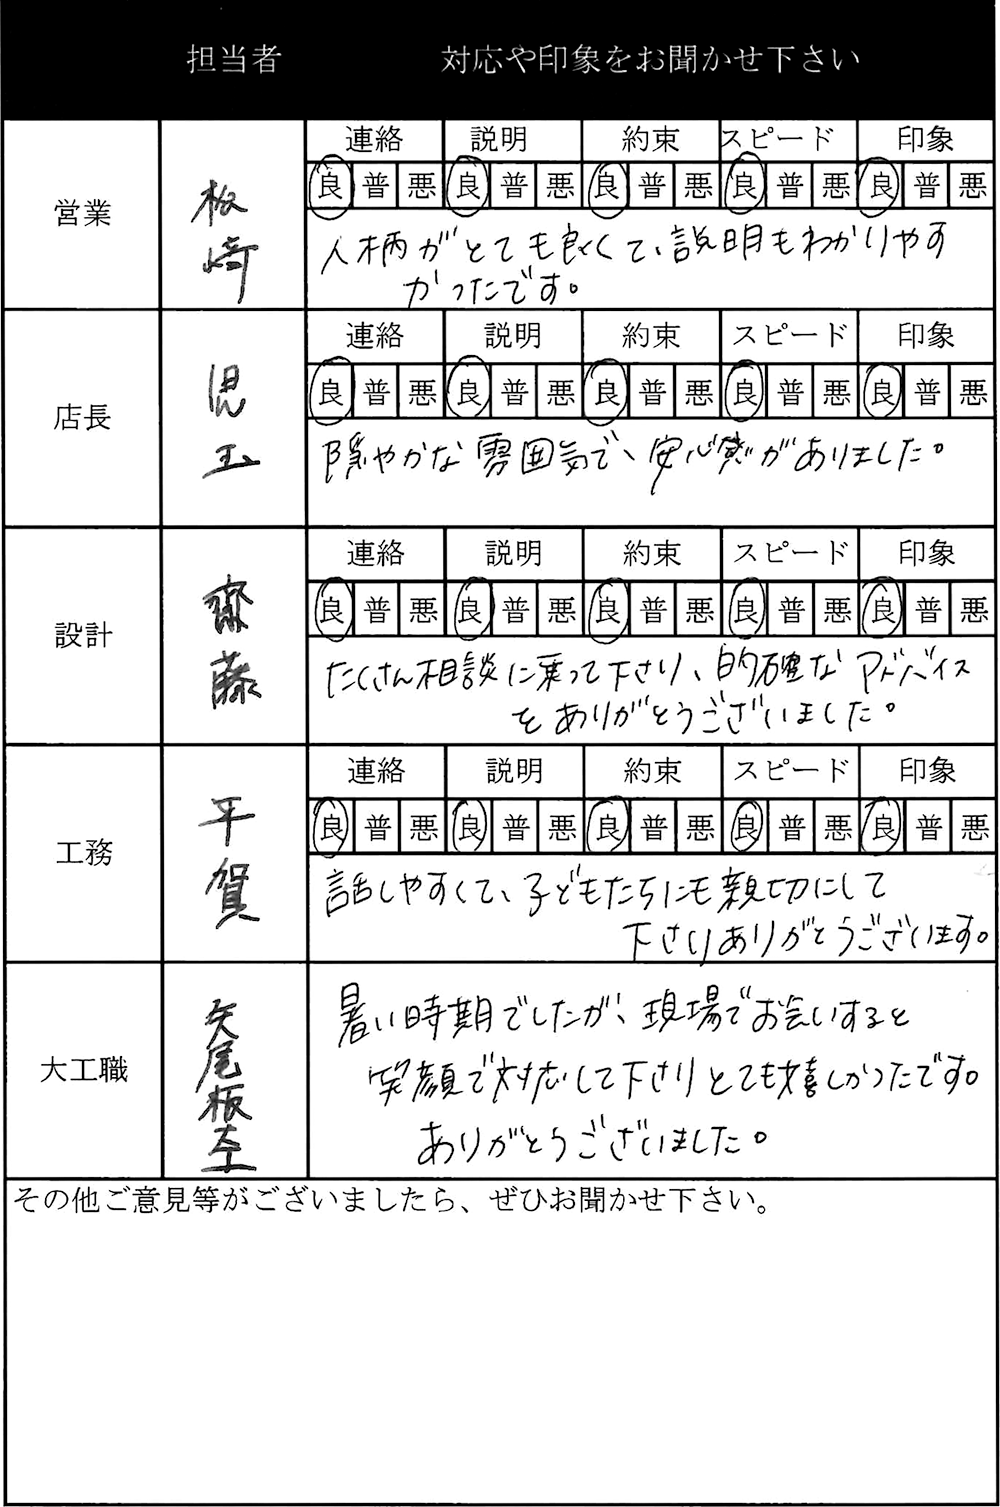 担当者 対応や印象をお聞かせ下さい
営業 板﨑
連絡 説明 約束 スピード 印象
良 普 悪 良 普 悪 良 普 悪 良 普 悪 良 普 悪
人柄がとても良くて、説明もわかりやす
かったです。
店長 児玉
連絡 説明 約束 スピード 印象
良 普 悪 良 普 悪 良 普 悪 良 普 悪 良 普 悪
隠やかな雰囲気で、安心感がありました。
設計 齋藤
連絡 説明 約束 スピード 印象
良 普 悪 良 普 悪 良 普 悪 良 普 悪 良 普 悪
たくさん相談に乗って下さり、的確なアドバイス
をありがとうございました。
工務 平賀
連絡 説明 約束 スピード 印象
良 普 悪 良 普 悪 良 普 悪 良 普 悪 良 普 悪
話しやすくて、子どもたちにも親切にして
下さりありがとうございます。
大工職 矢尾板
暑い時期でしたが、現場でお会いすると
笑顔で対応して下さりとても嬉しかったです。
ありがとうございました。
その他ご意見等がございましたら、ぜひお聞かせ下さい。